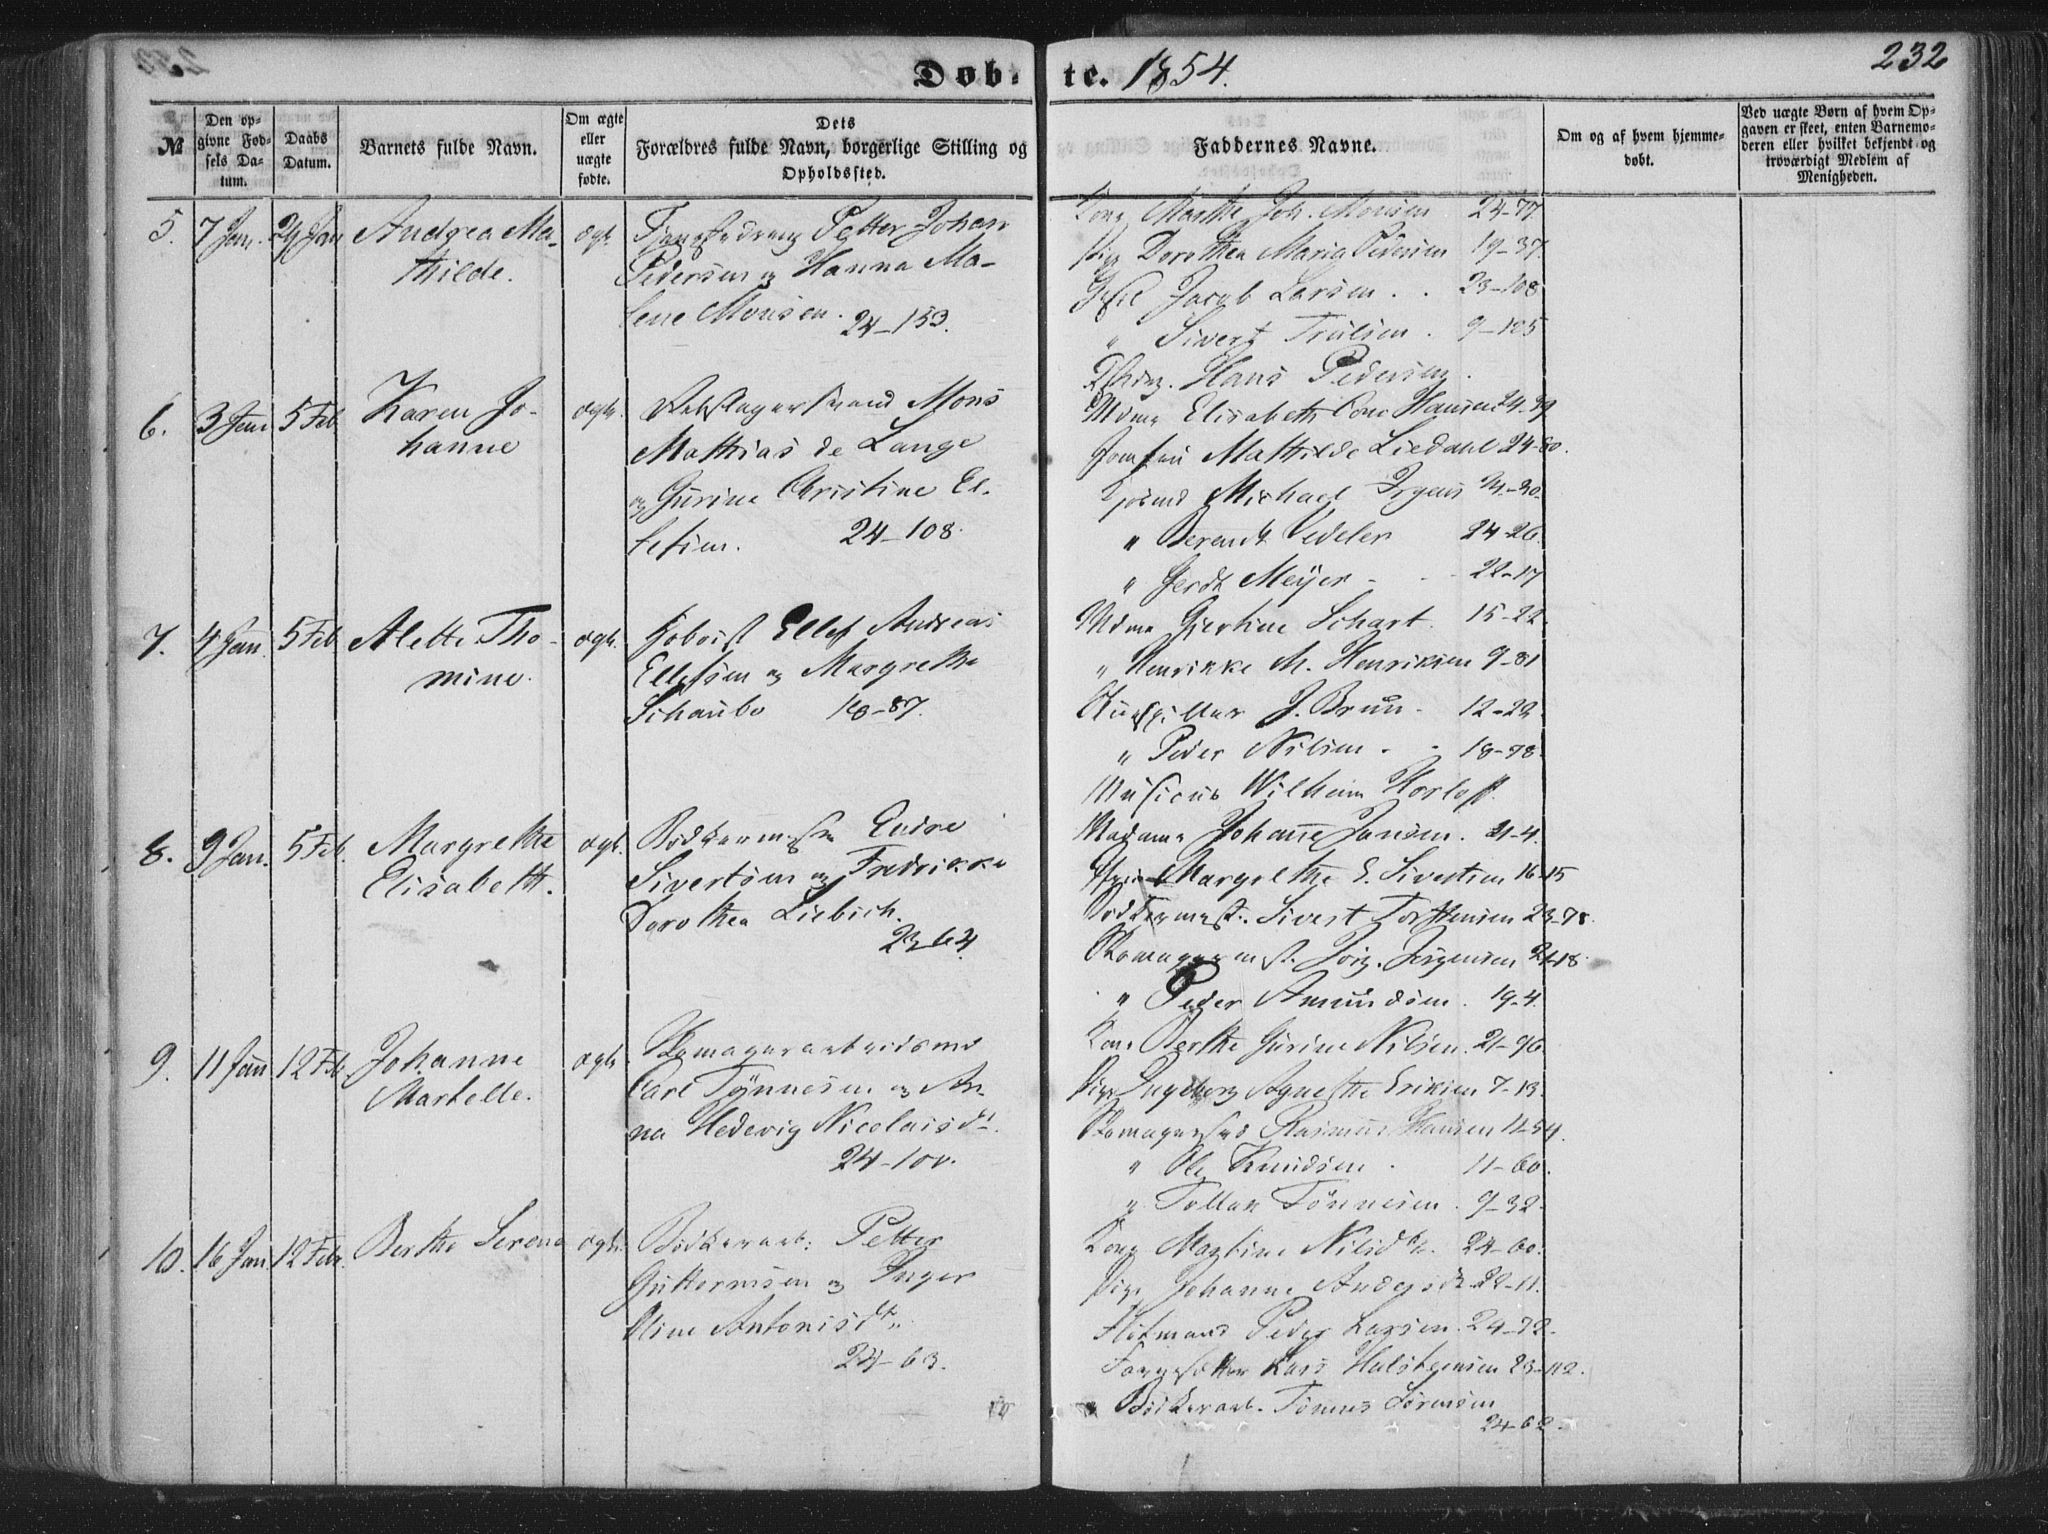 232
Døbte. 1854.
№
Den opgivne Fødsels Datum.
Daabs Datum.
Barnets fulde Navn.
Om ægte eller uægte fødte.
Dets Forældres fulde Navn, borgerlige Stilling og Opholdssted.
Faddernes Navne.
Om og af hvem hjemmedøbt.
Ved uægte Børn af hvem Opgaven er skeet, enten Barnemoderen eller hvilket bekjendt og troværdigt Medlem af Menigheden.
5. 7 Jan. 29 Jan Andrea Ma-
thilde.
ægte.
Petter Johan
Pedersen og Hanna Ma-
lene Monsen.
24-153.
Kone Marthe Joh. Monsen 24-77
Pige Dorothea Maria Pedersen 19-37.
Jacob Larsen . . 23-108
" Sivert Trulsen . 9-105
Hans Pedersen.
6. 3 Jan 5 Feb Karen Jo-
hanne
ægte.
Mons
Matthias de Lange
og Gurine Christine El-
lefsen. 24-108.
Mdme Elisabeth Hansen 24-39
Jomfru Mathilde Liedahl 24-80.
Michael Irgens 24-30.
" Berendt Vedeler 24-26.
" Gerdt Meÿer - - 22-17
7. 4 Jan. 5 Feb Alette Tho-
mine.
ægte.
Hoboist Ellef Andreas
Ellefsen og Margrethe
Schaubo 18-87.
Mdme Gjertine Schart. 15-22.
" Henrikke M. Henriksen 9-81
J. Brun. 12-22.
" Peder Nilsen . . 18-78.
Musicus Wilhelm
8. 9 Jan. 5 Feb. Margrethe
Elisabeth.
ægte.
Bødkermester Endre
Sivertsen og Fredrikke
Dorothea Liebich.
23-64.
Madame Johanne Jansen. 21-4.
Pige Margrethe E. Sivertsen 16-15
Bødkermest. Sivert Torstensen 23-78.
Skomagermest. Jørg. Jørgensen 21-18.
" Peder Amundsen . 19-4.
9. 11 Jan 12 Feb. Johanne
Martelle.
ægte.
Skomagerarbeidsmd
Carl Tønnesen og An-
na Hedevig Nicolaisdt.
24-100.
Kone Berthe Gurine Nilsen. 21-96.
Pige Ingeborg Agnethe Eriksen 7-13.
Rasmus Hansen 11-54.
" Ole Knudsen . 11-60.
" Tollak Tönnesen . 9-32.
10. 16 Jan. 12 Febr. Berthe Serena
ægte.
Bödkerarb: Petter
Guttormsen og Inger
Oline Antonisdtr.
24-63.
Kone Martine Nilsdtr. 24-60.
Pige Johanne Andersdt. 22-11.
Peder Larsen. 24-72.
Lars Halstensen 23-112.
Bödkerarb. Tönnes Sörensen
24-62.